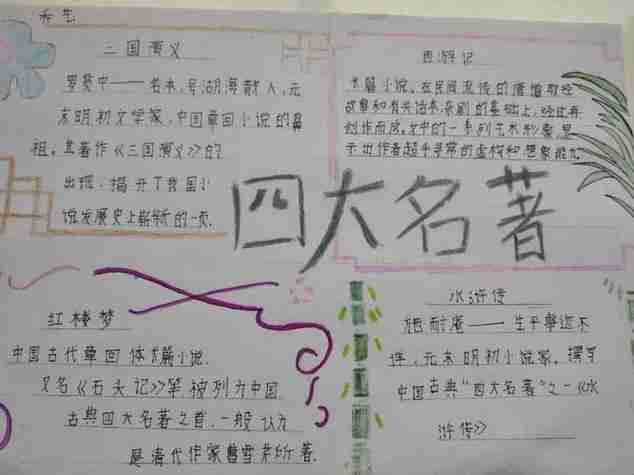 三国演义
罗贯中——名本,号湖海散人,元
末明初文学家,中国章回小说的鼻
祖。其著作《三国演义》的
出现,揭开了我国小
说发展史上崭新的一页.
西游记
长篇小说。在民间流传的唐僧取经
故事和有关话本杂剧的基础上,经过再
创作而成。文中的一系列艺术形象,显
示出作者超乎寻常的虚构和想象能力
四大名著
红楼梦
中国古代章回体长篇小说.
又名《石头记》等被列为中国
古典四大名著之首,一般认为
是清代作家曹雪芹所著.
水浒传
施耐庵——生平事迹不
详,元末明初小说家,撰写
中国古典"四大名著"之一《水
浒传》